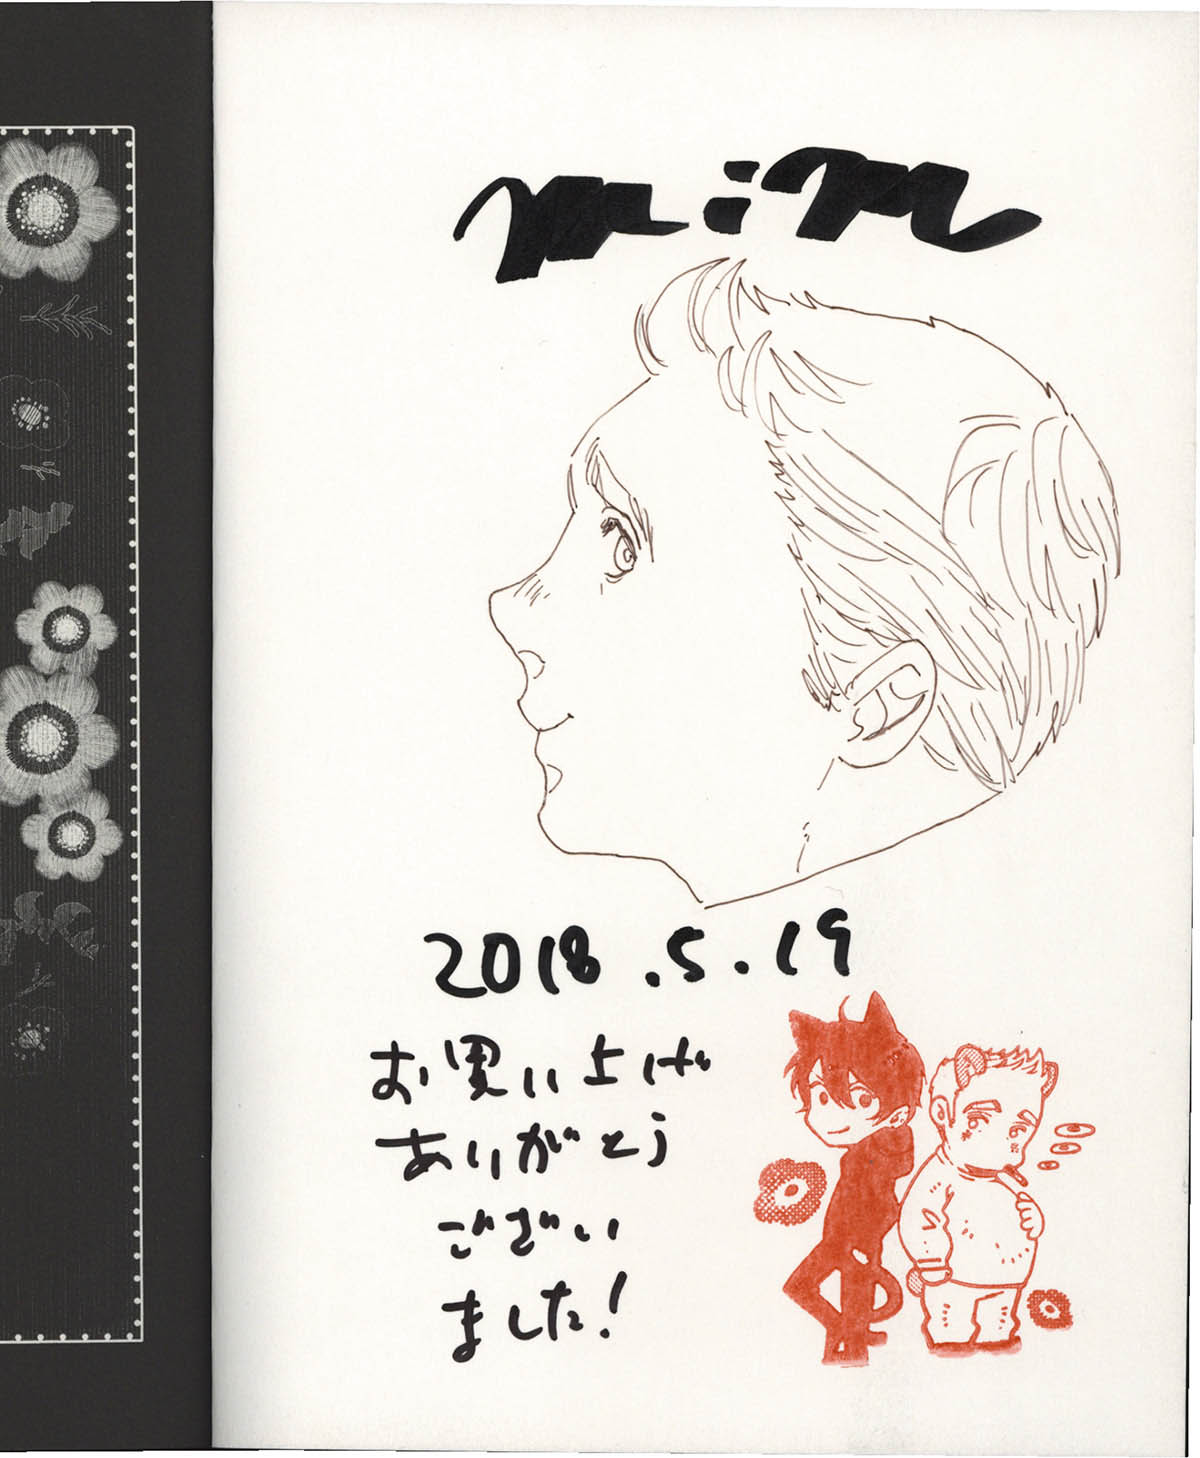 2018.5.19
お買い上げ
ありがとう
ござい
ました!